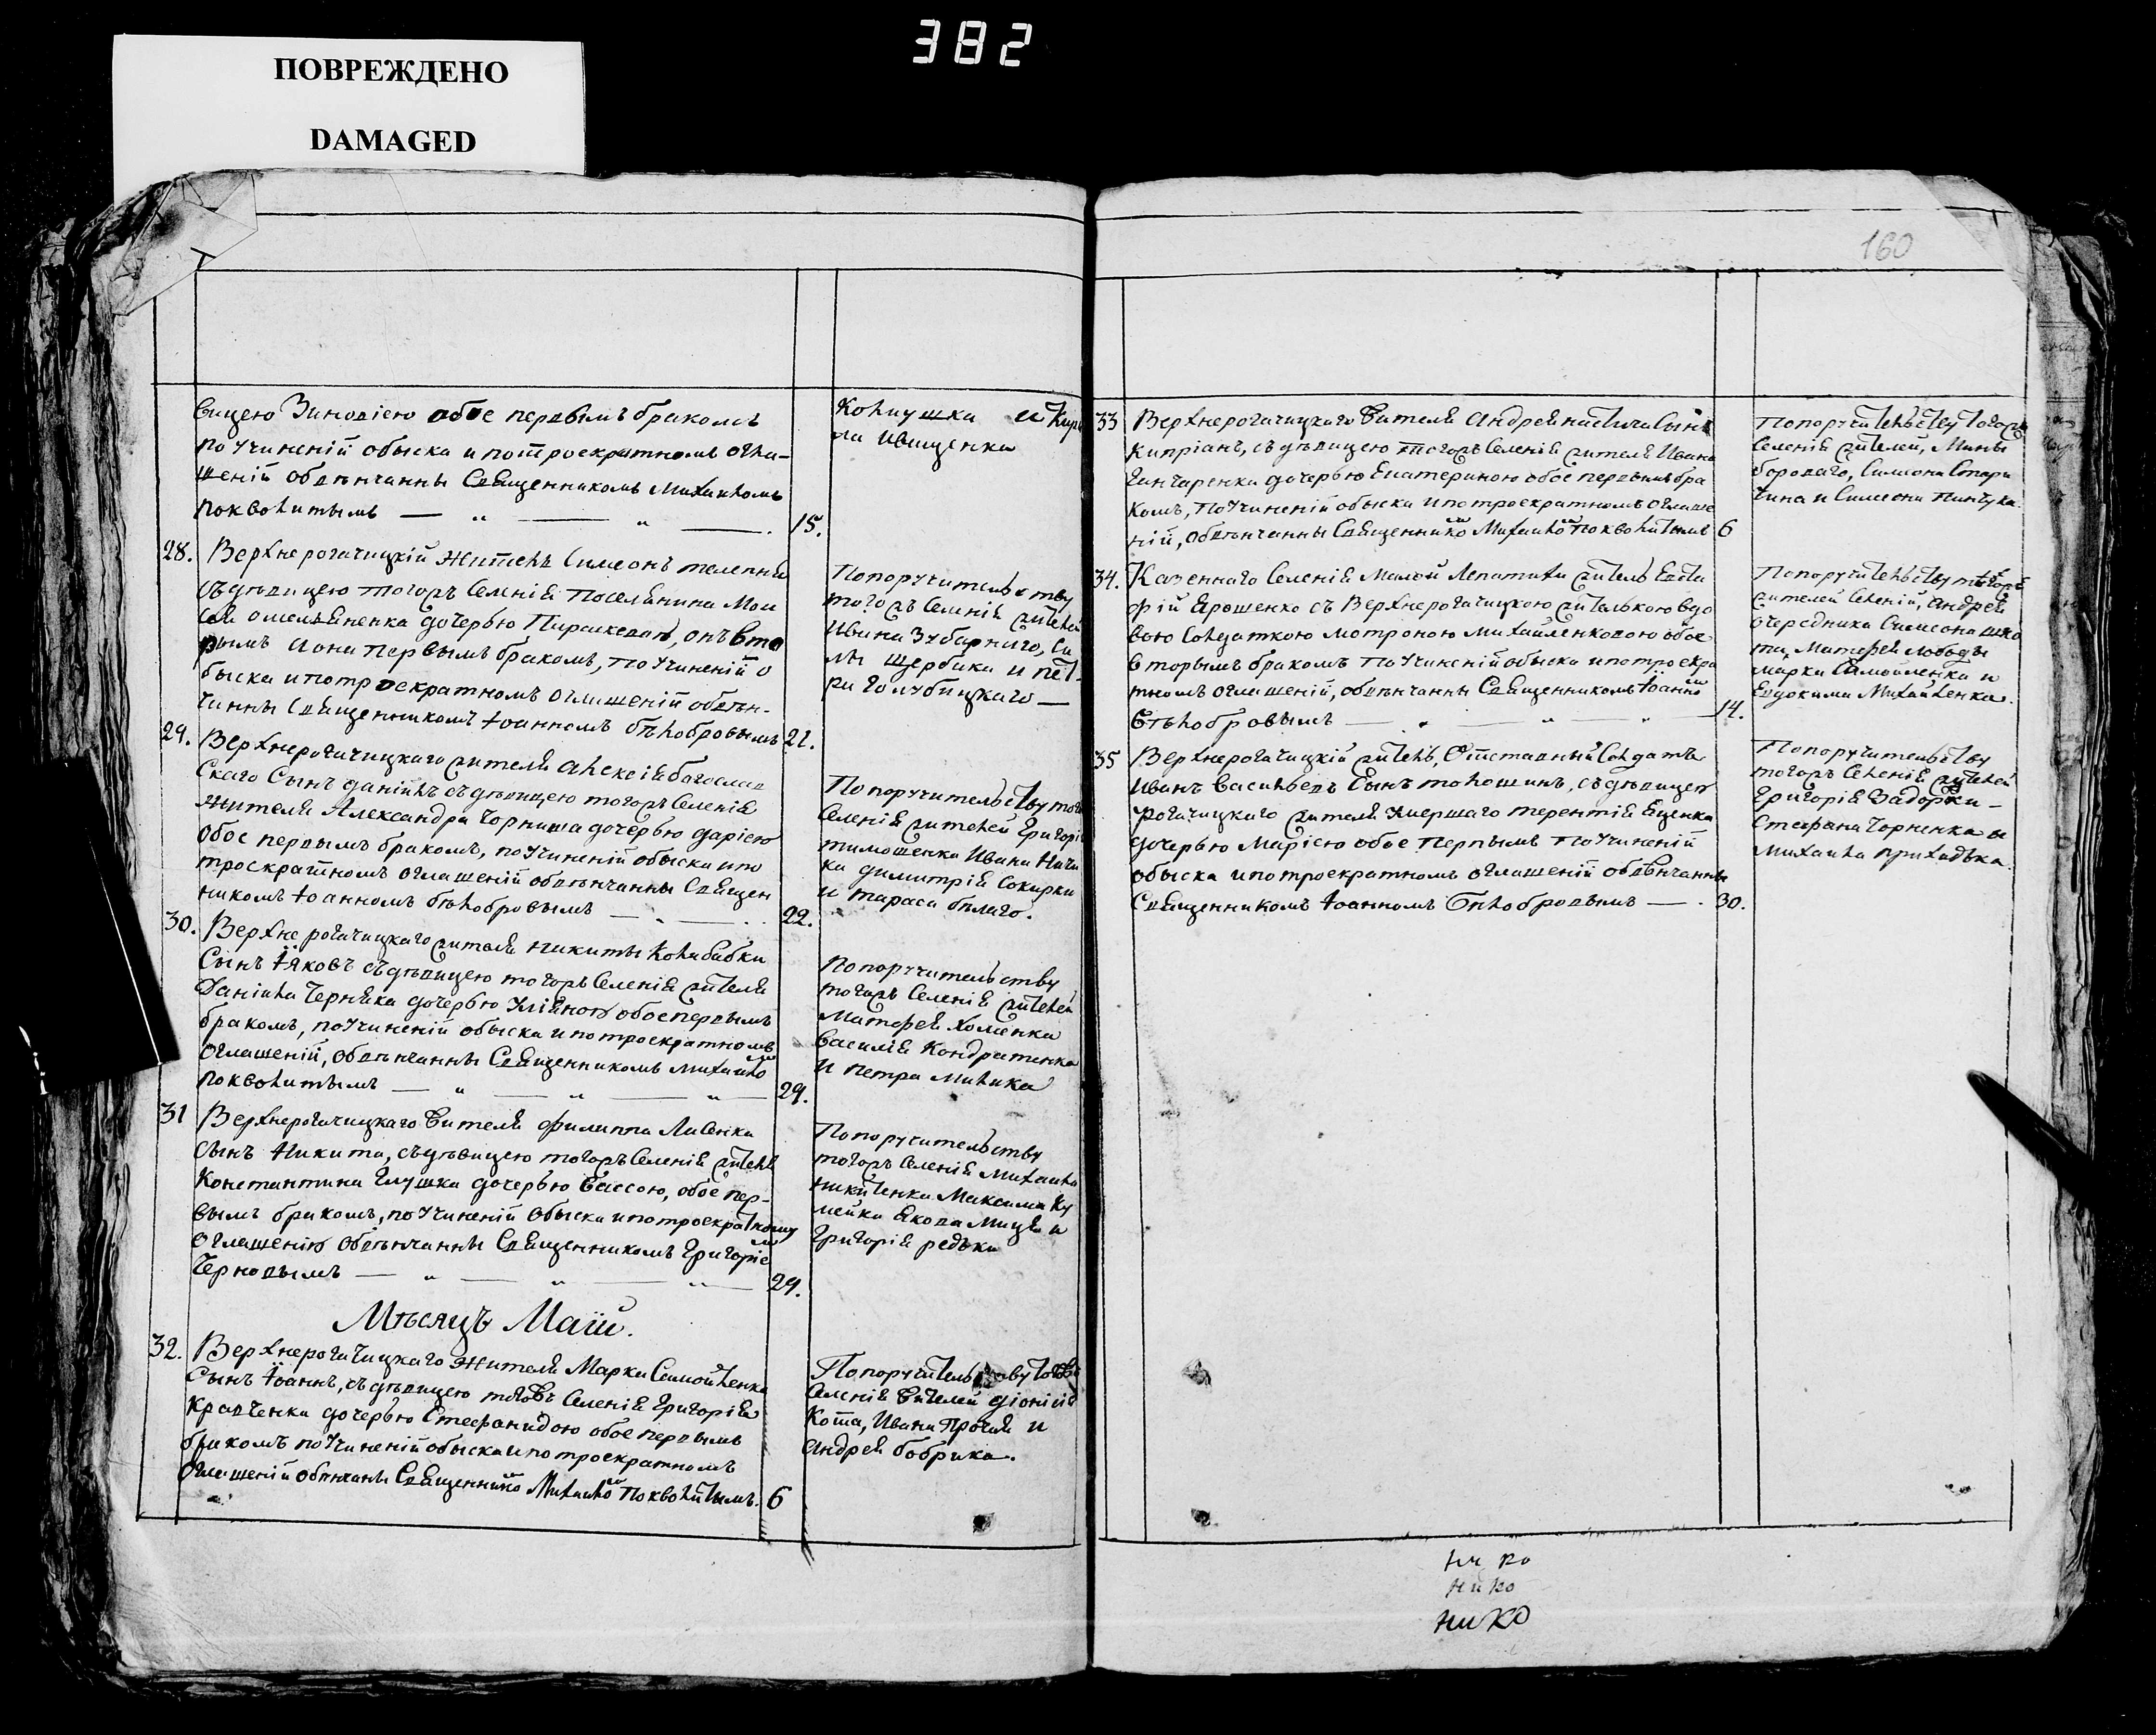 382
ПОВРЕЖДЕНО
DAMAGED
вицею Зиновіею обое первымъ бракомъ
по учиненій обыска и потроекратномъ огла-
шеній обвѣнчанны Священникомъ Михаиломъ
Покволитымъ — „ — „ — . 15.
Кольцушка и Кири
ла Иващенка
28. Верхнерогачицкій житель Симеонъ телепня
съ дѣвицею тогожъ Селенія Поселянина Мои
сея омельяненка дочерью Параскевою, онъ вто
рымъ а она первымъ бракомъ, по учиненій о
быска и потроекратномъ оглашеній обвѣн-
чанны Священникомъ Іоанномъ бѣлобровымъ 21.
По поручительству
тогожъ Селенія жителей
Ивана Зубарнаго, Си
лы Щербака и пет-
ра голубицкаго —
29. Верхнерогачицкаго жителя алексія богослав
скаго Сынъ даніилъ съ дѣвицею тогожъ Селенія
жителя Александра Чорныша дочерью даріею
обое первымъ бракомъ, по учиненій обыска и по
троекратномъ оглашеній обвѣнчанны Священ
никомъ Іоанномъ бѣлобровымъ — . — . 22.
По поручительству тогожъ
Селенія жителей Григорія
тимошенка Ивана Ничи
ка димитрія Сокирки
и тараса билаго.
30. Верхнерогачицкаго жителя никиты Колибабки
Сынъ Іяковъ съ дѣвицею тогожъ Селенія жителя
Даніила Черняка дочерью Уліяною обое первымъ
бракомъ, по учиненій обыска и потроекратномъ
оглашеній, обвѣнчанны Священникомъ Михаило
мъ
Покволитымъ — „ — „ — „ — 29.
По поручительству
тогожъ Селенія жителей
Матфея Хоменка
Василія Кондратенка
и петра Милика
31 Верхнерогачицкаго жителя филиппа Лисенка
Сынъ Никита, съ дѣвицею тогожъ Селенія жителя
Константина Глушка дочерью Вассою, обое пер-
вымъ бракомъ, по учиненій обыска и потроекратному
оглашенію обвѣнчанны Священникомъ Григоріе
мъ
Черновымъ — „ — „ — „ — 29.
По поручительству
тогожъ Селенія Михаила
никитенка Максима Ку
лейки Якова Мицы и
Григорія редька
Мѣсяцъ Маій.
32. Верхнерогачицкаго жителя Марка Самойленка
Сынъ Іоаннъ, съ дѣвицею тогожъ Селенія Григорія
Кравченка дочерью Стефанидою обое первымъ
бракомъ по учиненій обыска и потроекратномъ
оглашеній обвѣнчаны Священникомъ Михаиломъ Покволитымъ. 6
По поручительству тогожъ
Селенія жителей діонисія
Кота, Ивана Прочая и
Андрея бобрика.
160
33 Верхнерогачицкаго жителя Андрея настича Сынъ
Кипріанъ, съ дѣвицею тогожъ Селенія жителя Ивана
Гинчаренка дочерью Екатериною обое первымъ бра
комъ, по учиненій обыска и потроекратномъ оглаше
ній, обвѣнчанны Священникомъ Михаиломъ Покволитымъ 6
По поручительству тогожъ
Селенія жителей, Мины
бородаго, Симеона Стари
чина и Симеона Пинчука.
34. Казеннаго Селенія Малой Лепатихи житель Евста
фій Ярошенко съ Верхнерогачицкою жителькою вдо
вою Солдаткою Мотроною Михайленковою обое
вторымъ бракомъ по учиненій обыска и потроекра
тномъ оглашеній, обвѣнчанны Священникомъ Іоанно
мъ
бѣлобровымъ — „ — „ — „ — 14.
По поручительству тогожъ
жителей Селеній, Андрея
очередника Симеона шко
ты, Матфея Лободы
Марка Самойленка и
Евдокима Михайленка.
35 Верхнерогачицкій житель, Отставный Солдатъ
Иванъ Васильевъ Сынъ толошинъ, съ дѣвицею
рогачицкаго жителя умершаго терентія Яценка
дочерью Маріею обое первымъ по учиненій
обыска и потроекратномъ оглашеній обвѣнчанны
Священникомъ Іоанномъ бѣлобровымъ — . 30.
По поручительству
тогожъ Селенія жителей
Григорія Задорки-
Стефана Чорненка и
Михаила приходька
ни ко
ни ко
ни ко